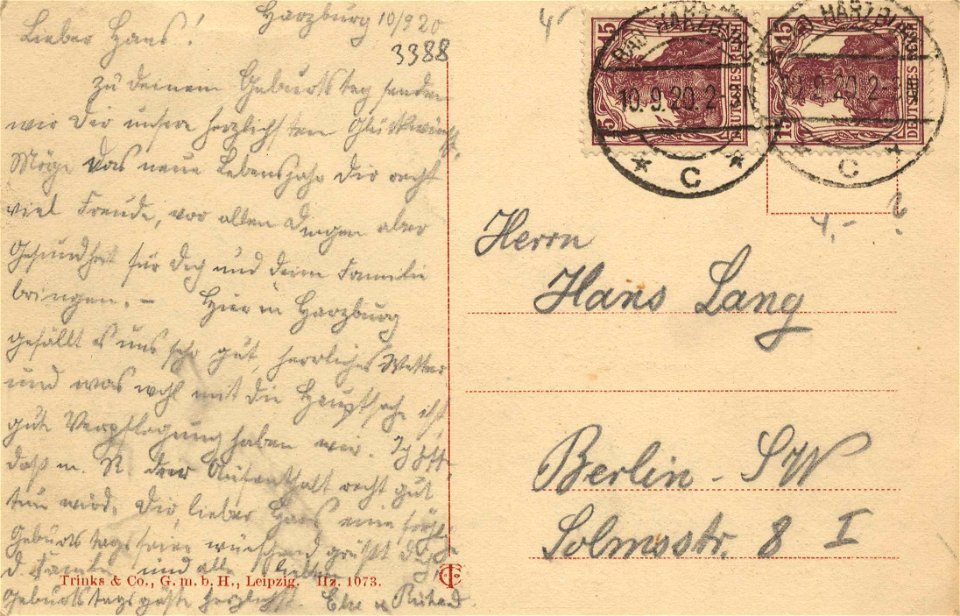 Harzburg 10/9 20
Lieber Hans!
3388
zu deinem Geburtstag senden
wir Dir unsere herzlichsten Glückwünsche.
Möge das neue Lebensjahr Dir recht
viel Freude, vor allen Dingen aber
Gesundheit für Dich und deine Familie
bringen. – Hier in Harzburg
gefällt es uns sehr gut, herrliches Wetter
und was wohl mit die Hauptsache ist,
gute Verpflegung haben wir. Ich hoffe,
daß m. R. der Aufenthalt recht gut
tun wird. Dir, lieber Hans eine fröhliche
Geburtstagsfeier wünschend grüßt Dich,
d. Familie und alle lieben
Geburtstagsgäste herzlichst Else u Richard.
Trinks & Co., G. m. b. H., Leipzig. Hz. 1073.
BAD HARZBURG
10.9.20.2-
* C *
15
DEUTSCHES REICH
15
BAD HARZBURG
10.9.20.2-
* C *
15
DEUTSCHES REICH
15
4,-
Herrn
Hans Lang
Berlin - SW
Solmsstr. 8 I